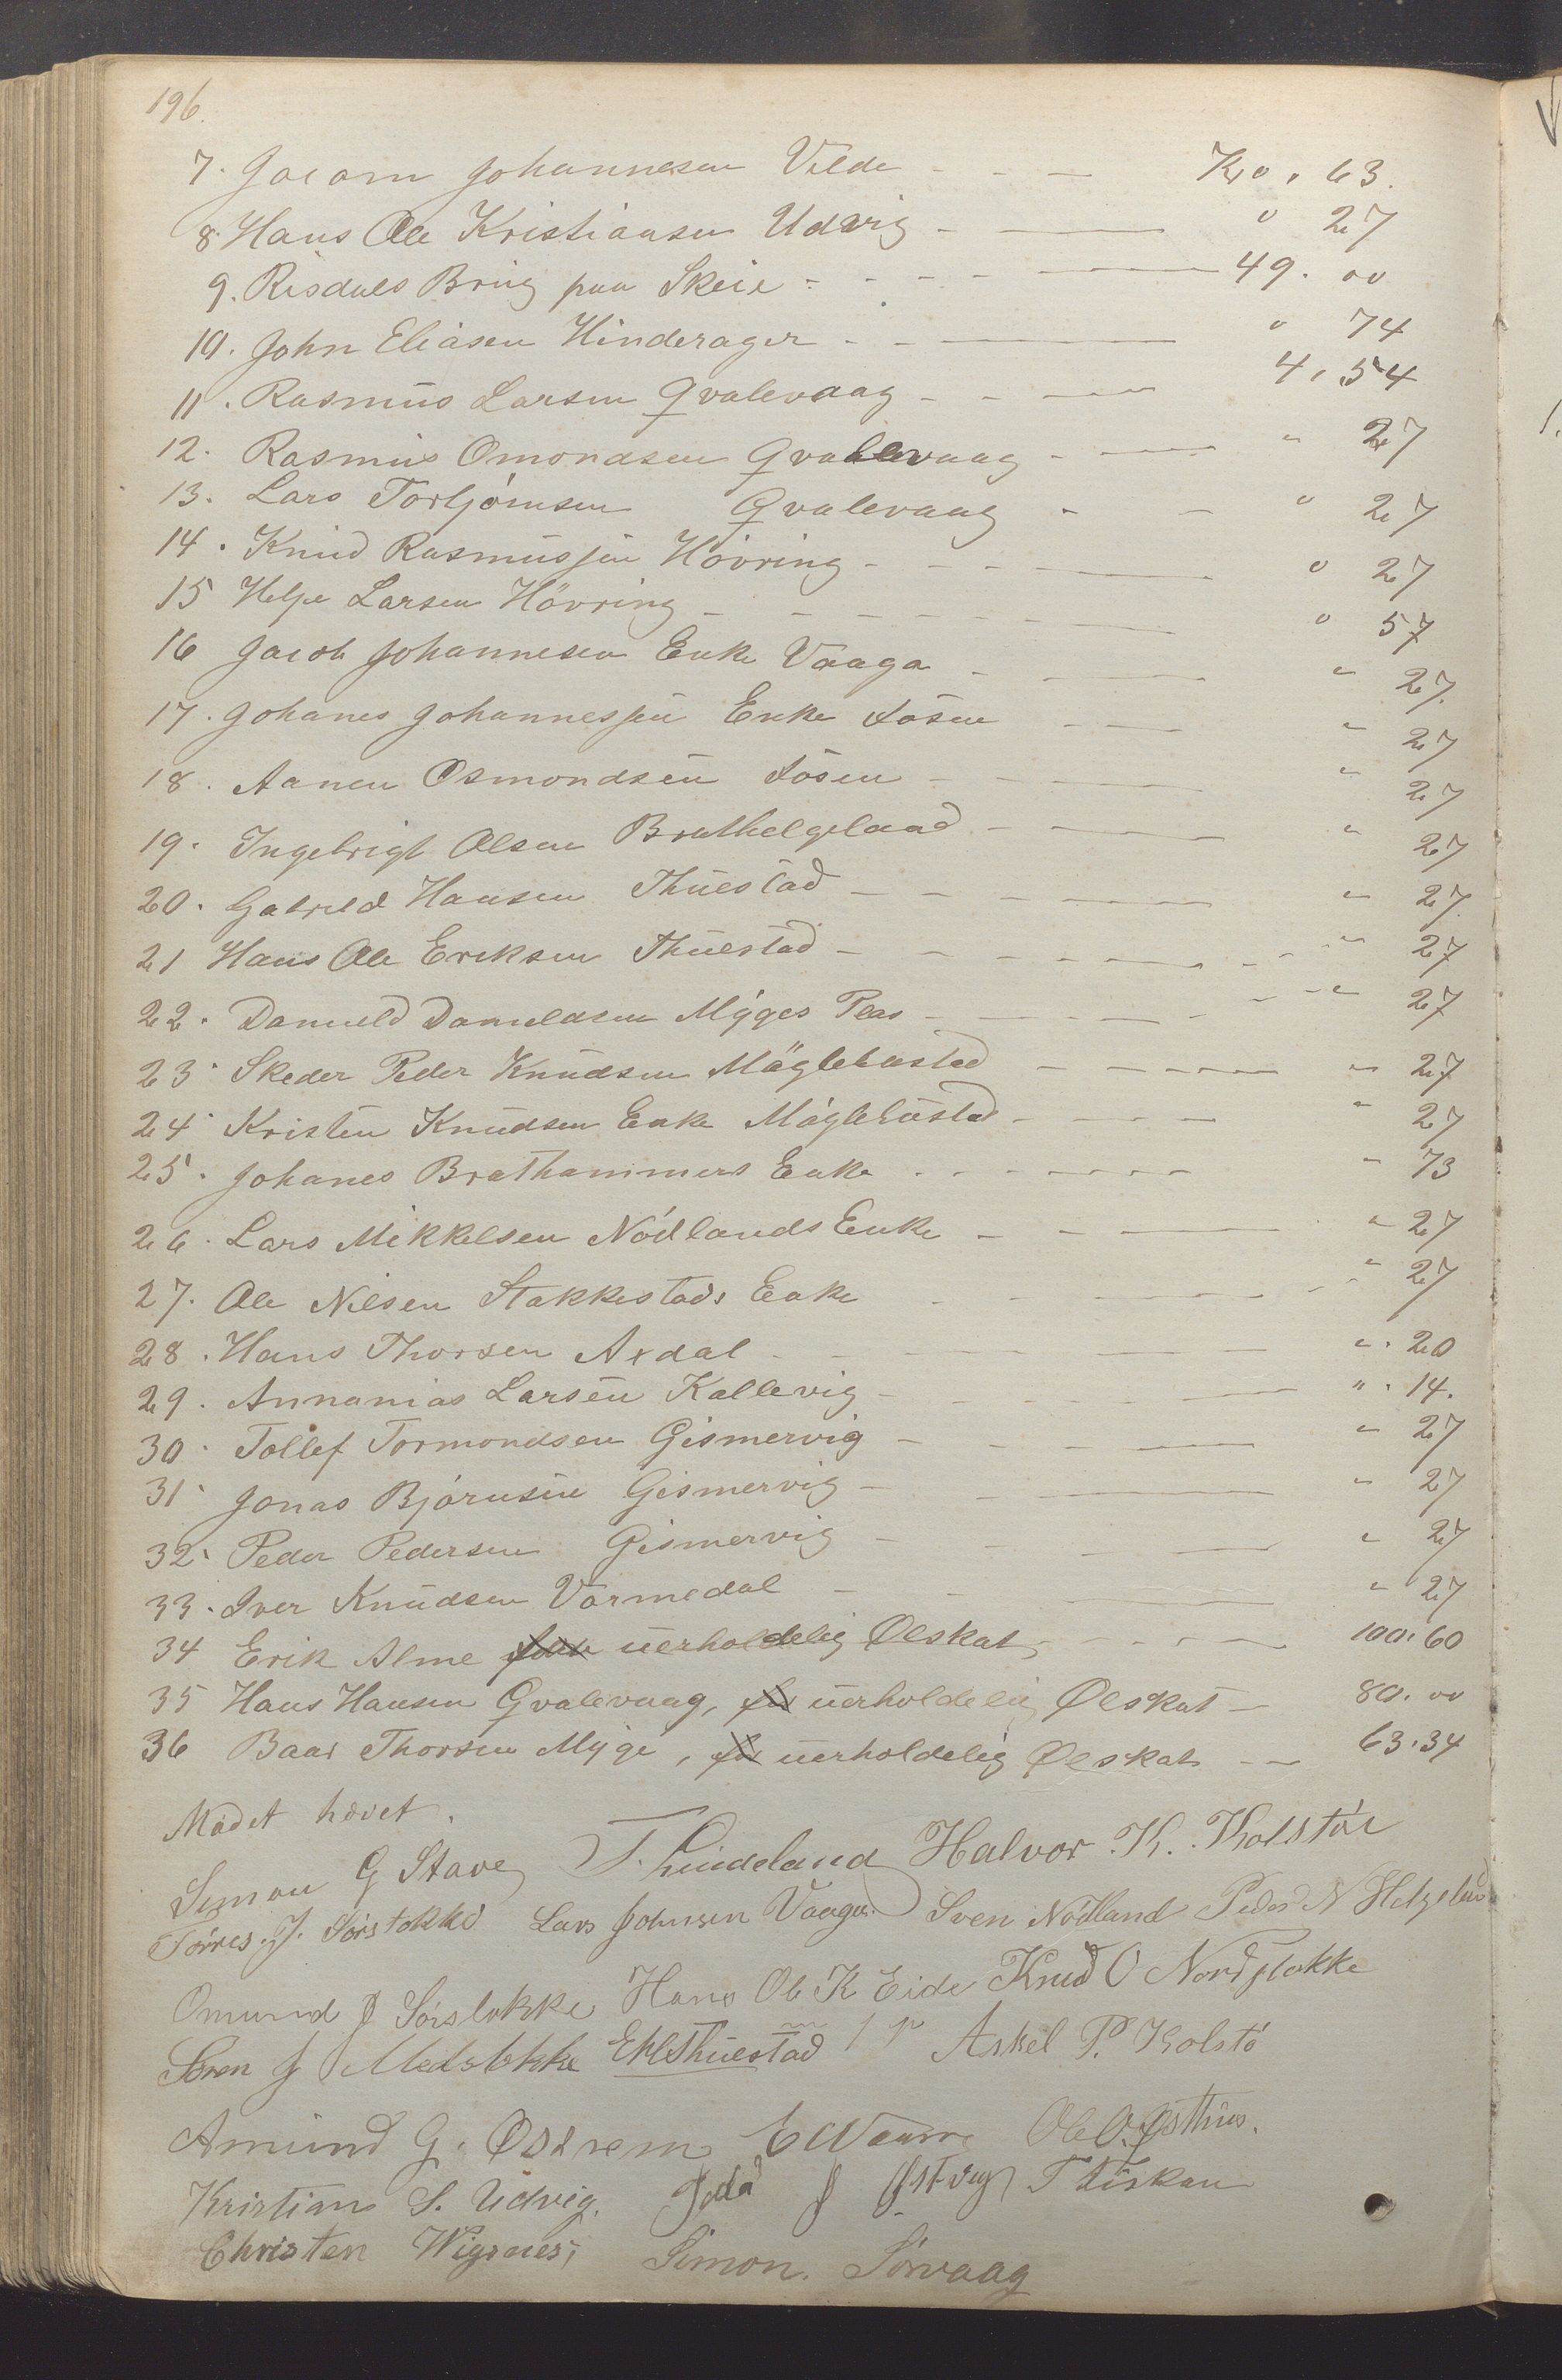 196.
7. Jacom Johannesen Vilde - - - Kr 0, 63.
8. Hans Ole Kristiansen Udvig - - 0 27
9. Risdals Brug paa Skeie - - - - 49. 00
10. John Eliasen Hinderager - - - 0 74
11. Rasmus Larsen Qvalevaag - - - 4, 54
12. Rasmus Omondsen Qvalevaag - - " 27
13. Lars Torbjörnsen Qvalevaag - - 0 27
14. Knud Rasmussen Hövring - - - 0 27
15 Helje Larsen Hövring - - - - - 0 57
16 Jacob Johannesen Enke Vaaga - - " 27.
17. Johanes Johannessen Enke Aösen - - " 27
18. Aanen Osmondsen Aösen - - - " 27
19. Ingebrigt Olsen Brathelgeland - - " 27
20. Gabrild Hansen Thuestad - - - - " 27.
21 Hans Ole Eriksen Thuestad - - - - " 27
22. Danield Danieldsen Myges Plas - - - " 27
23. Skeder Peder Knudsen Mäglebustad - - - " 27
24. Kristen Knudsen Enke Möglebustad - - - " 27
25. Johanes Brathammers Enke - - - - " 73
26. Lars Mikkelsen Nödlands Enke - - - " 27
27. Ole Nilsen Stakkestads Enke - - - - " 27
28. Hans Thorsen Axdal - - - - ". 20
29. Annanias Larsen Kallevig - - - - ". 14.
30. Tollef Tormondsen Gismervig - - - " 27
31. Jonas Björnsen Gismervig - - - " 27
32. Peder Pedersen Gismervig - - - " 27
33. Iver Knudsen Vormedal - - - " 27
34 Erik Alme uerholdelig Ølskat - - - - 100.60
35 Hans Hansen Qvalevaag, for uerholdelig Ølskat - 80. 00
36 Baar Thorsen Myge, for uerholdelig Ølskat - - 63.34
Mödet hævet.
Simon G Stave T. Lindeland Halvor. K. Kolstöe
Törres. J. Sörstokke Lars Johnsen Vaaga. Sven Nödland Peder N Helgeland
Omund J Sörstokke Hans Ole K Eide Knud O Nordstokke
Sören J Medstokke EHThuestad Askel P. Kolstö
Amund G. Østrem Ole O. Østhus.
Kristian S. Udvig. J
Christen Wigsnes, Simon. Sörvaag